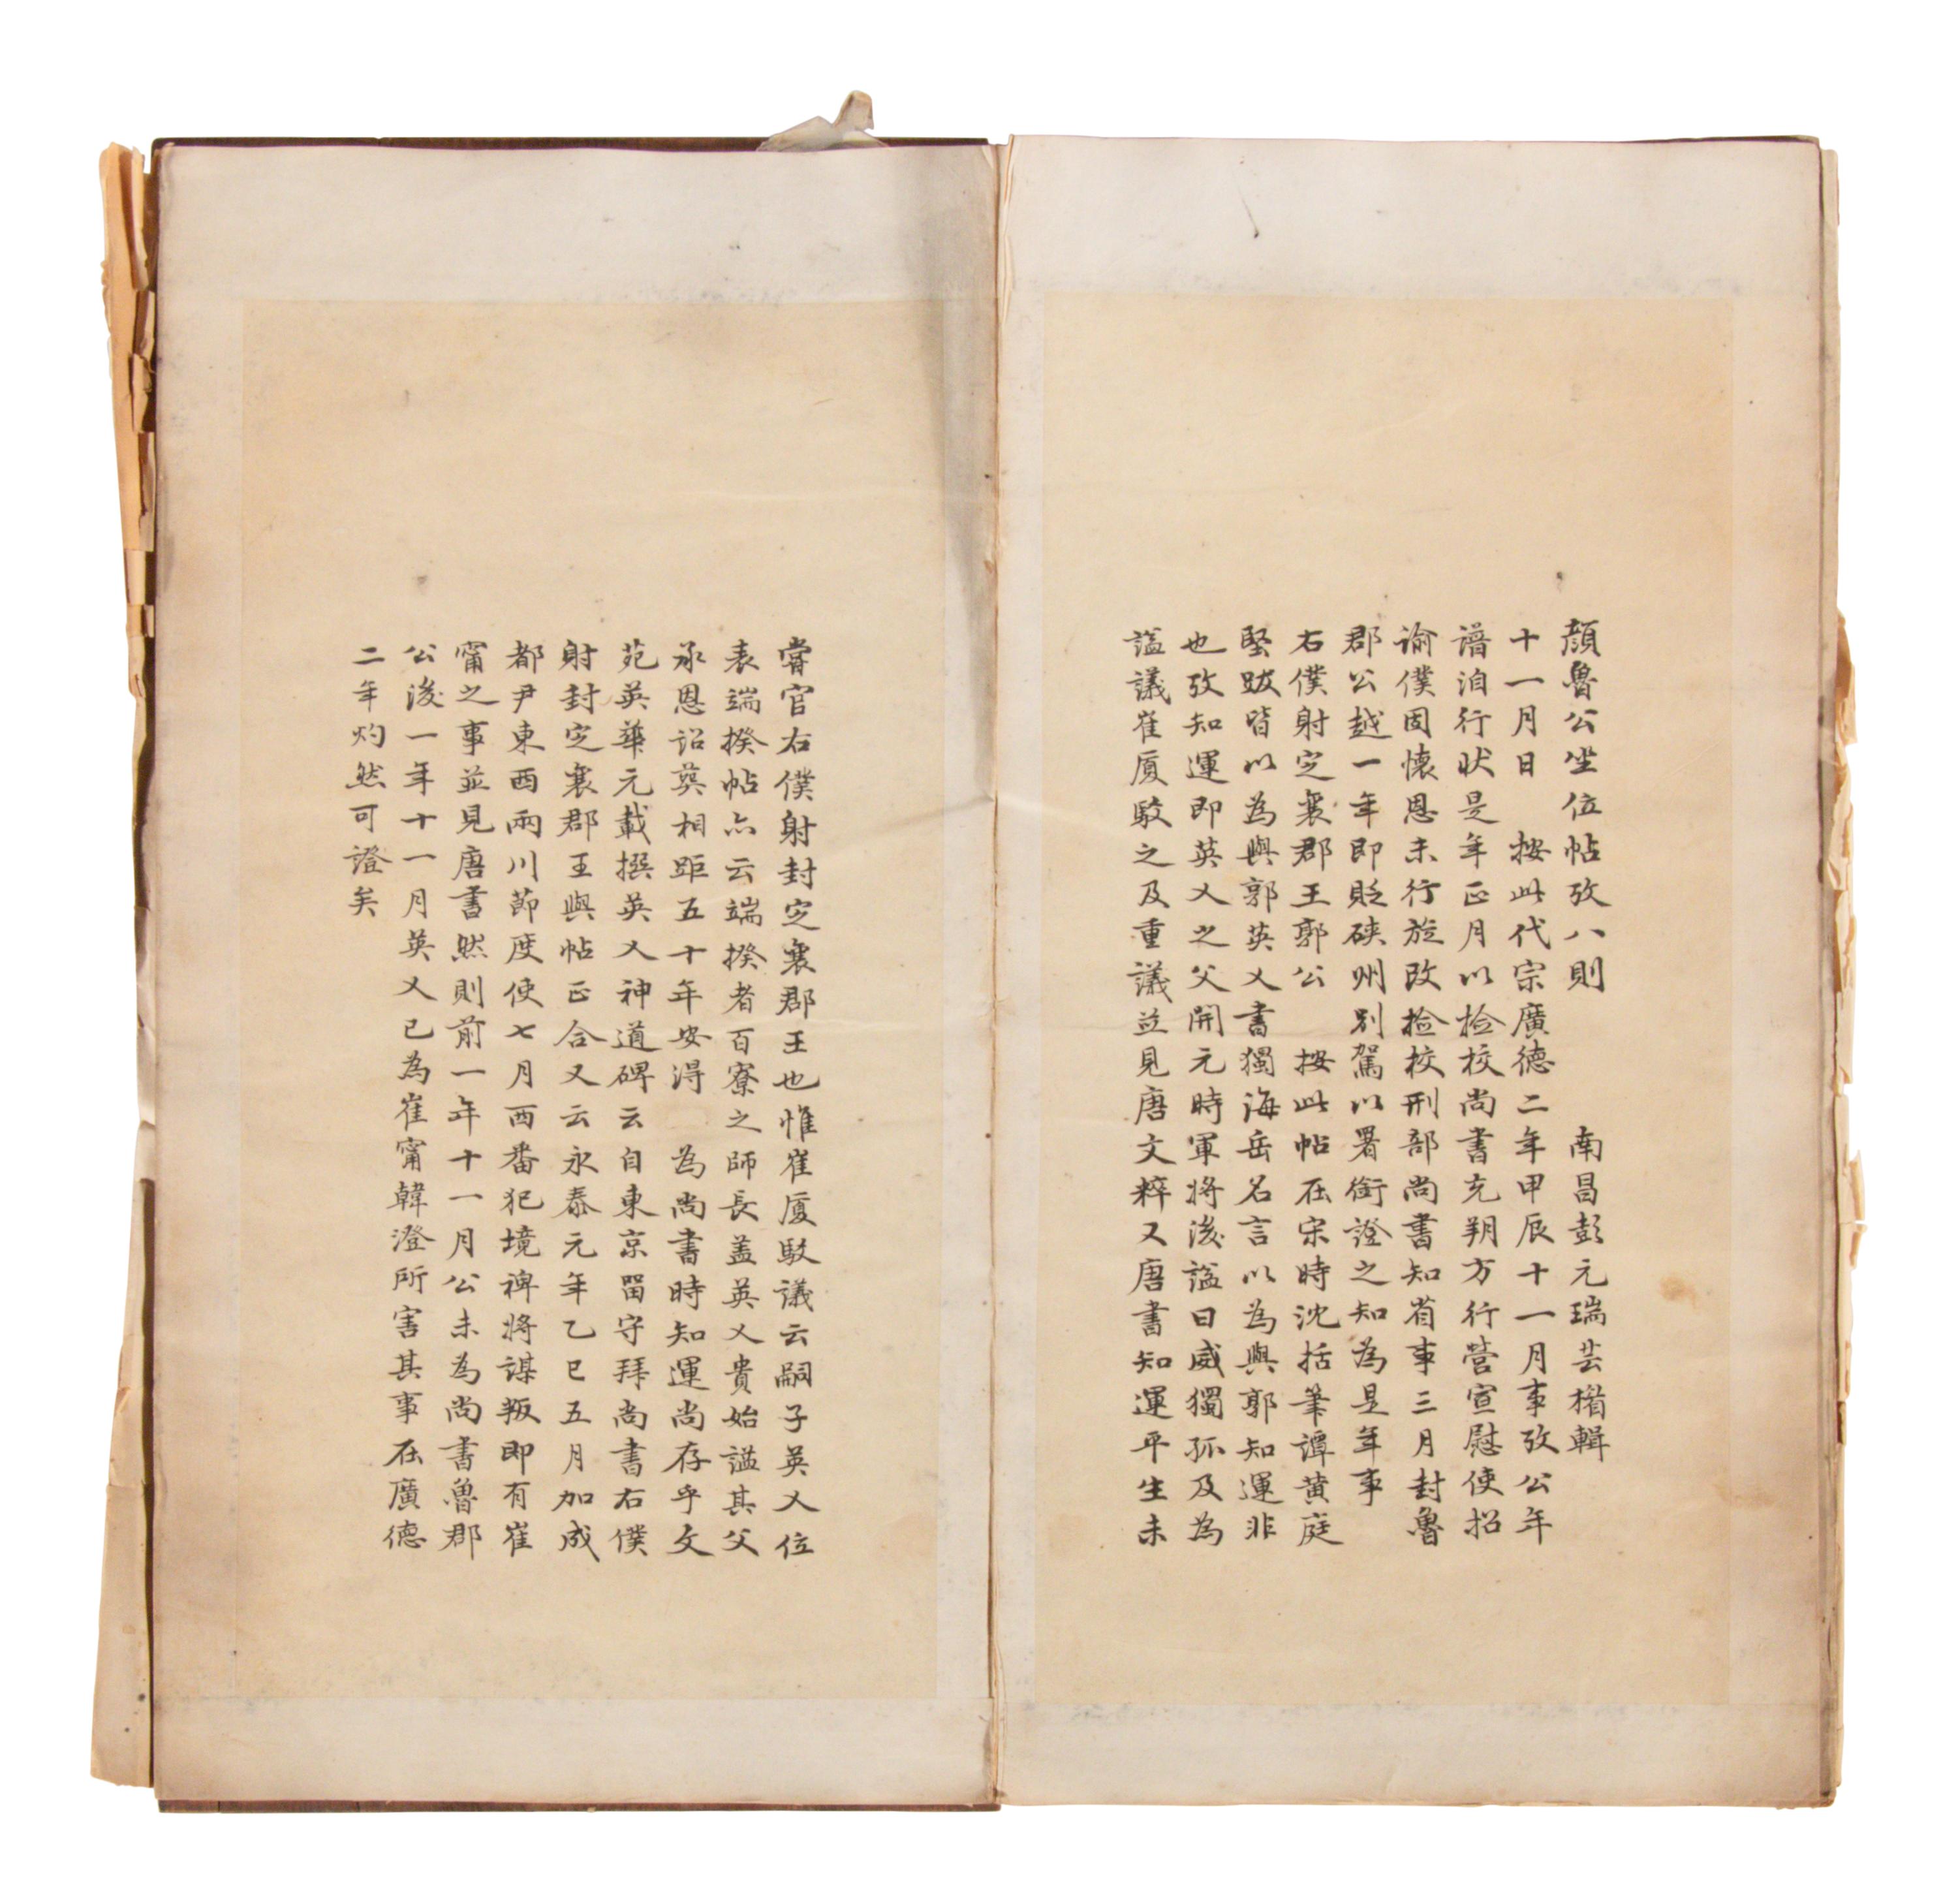 顏魯公坐位帖攷八則　南昌彭元瑞芸楣輯
十一月日　按此代宗廣德二年甲辰十一月事攷公年
譜洎行狀是年正月以檢校尚書充朔方行營宣慰使招
諭僕固懷恩未行旋改檢校刑部尚書知省事三月封魯
郡公越一年即貶硤州別駕以署銜證之知為是年事
右僕射定襄郡王郭公　按此帖在宋時沈括筆譚黃庭
堅跋皆以為與郭英乂書獨海岳名言以為與郭知運非
也攷知運即英乂之父開元時軍將後謚曰威獨孤及為
謚議崔厦駮之及重議並見唐文粹又唐書知運平生未
嘗官右僕射封定襄郡王也惟崔厦駮議云嗣子英乂位
表端揆帖亦云端揆者百寮之師長盖英乂貴始謚其父
承恩詔葬相距五十年安得　為尚書時知運尚存乎文
苑英華元載撰英乂神道碑云自東京留守拜尚書右僕
射封定襄郡王與帖正合又云永泰元年乙巳五月加成
都尹東西兩川節度使七月西番犯境裨將謀叛即有崔
甯之事並見唐書然則前一年十一月公未為尚書魯郡
公後一年十一月英乂已為崔甯韓澄所害其事在廣德
二年灼然可證矣